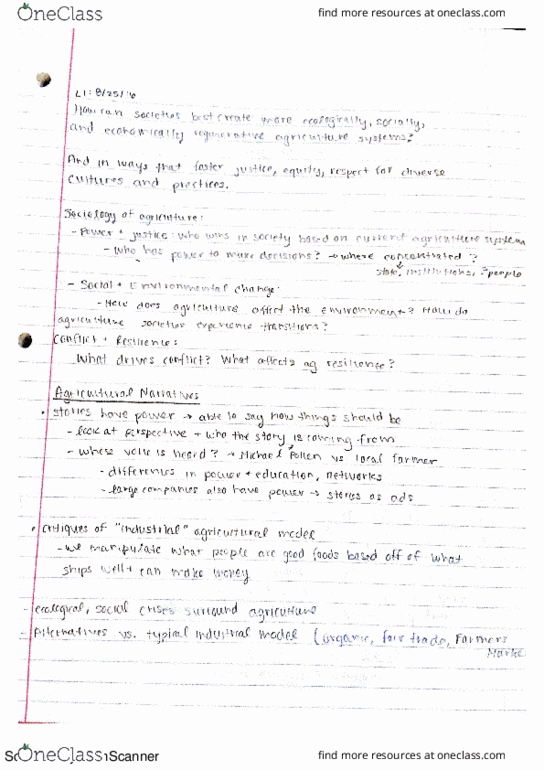 OneClass find more resources at oneclass.com
L1: 8/25/16
How can societies best create more ecologically, socially,
and economically regenerative agriculture systems?
And in ways that foster justice, equity, respect for diverse
cultures and practices.
Sociology of agriculture:
- Power + justice: who wins in society based on current agriculture system
- who has power to make decisions? → where concentrated?
state, institutions, ? people
- Social + Environmental change:
- How does agriculture affect the environment? How do
agriculture societies experience transitions?
Conflict + Resilience:
What drives conflict? What affects ag resilience?
Agricultural Narratives
• stories have power → able to say how things should be
- look at perspective → who the story is coming from
- whose voice is heard? → Michael Pollen vs local farmer
- differences in power + education, networks
- large companies also have power → stories as ads
• critiques of "industrial" agricultural model
- we manipulate what people are good foods based off of what
ships well + can make money
- ecological, social crises surround agriculture
- Alternatives vs. typical industrial model (organic, fair trade, Farmers
Marke
OneClass Scanner find more resources at oneclass.com